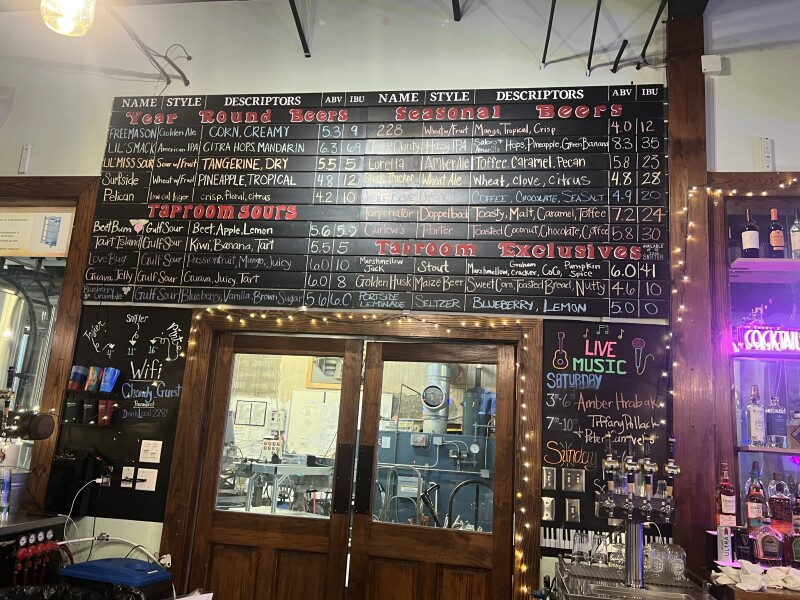 NAME STYLE DESCRIPTORS ABV IBU NAME STYLE DESCRIPTORS ABV IBU
Year Round Beers
FREEMASON Golden Ale CORN, CREAMY 5.3 9
LIL' SMACK American IPA CITRA HOPS MANDARIN 6.3 69
LIL' MISS SOUR Sour w/Fruit TANGERINE, DRY 5.5 5
Surfside Wheat w/Fruit PINEAPPLE, TROPICAL 4.8 12
Pelican low cal lager crisp, floral, citrus 4.2 10
Taproom Sours
Beet Bum Gulf Sour Beet, Apple, Lemon 5.6
Tart Island Gulf Sour Kiwi, Banana, Tart 5.5 5
Love Bug Gulf Sour Passionfruit, Mango, Juicy 6.0 10
Guava Jelly Gulf Sour Guava, Juicy, Tart 6.0 8
Blueberry Crumble Gulf Sour Blueberry, Vanilla, Brown Sugar
Seasonal Beers
228 Wheat w/Fruit Mango, Tropical, Crisp 4.0 12
Clarity Hazy IPA Hops, Pineapple, Green Banana 8.3 35
Loretta Amber Ale Toffee, Caramel, Pecan 5.8 23
Wheat Ale Wheat, clove, citrus 4.8 28
COFFEE, CHOCOLATE, SEA SALT 4.9 20
Doppelbock Toasty, Malt, Caramel, Toffee 7.2 24
Porter Toasted Coconut, Chocolate, Coffee 5.8 30
Taproom Exclusives
Marshmellow Jack Stout Marshmellow, Graham Cracker, CoCo, Pumpkin Spice 6.0 41
Golden Husk Maize Beer Sweet Corn, Toasted Bread, Nutty 4.6 10
PORTSIDE LEMONADE SELTZER BLUEBERRY, LEMON 5.0 0
4oz 11oz 16oz
Wifi
Password
LIVE
MUSIC
SATURDAY
3-6 Amber Hrabak
7-10 Tiffany Pollack
+ Peter
Sunday
COCKTAIL